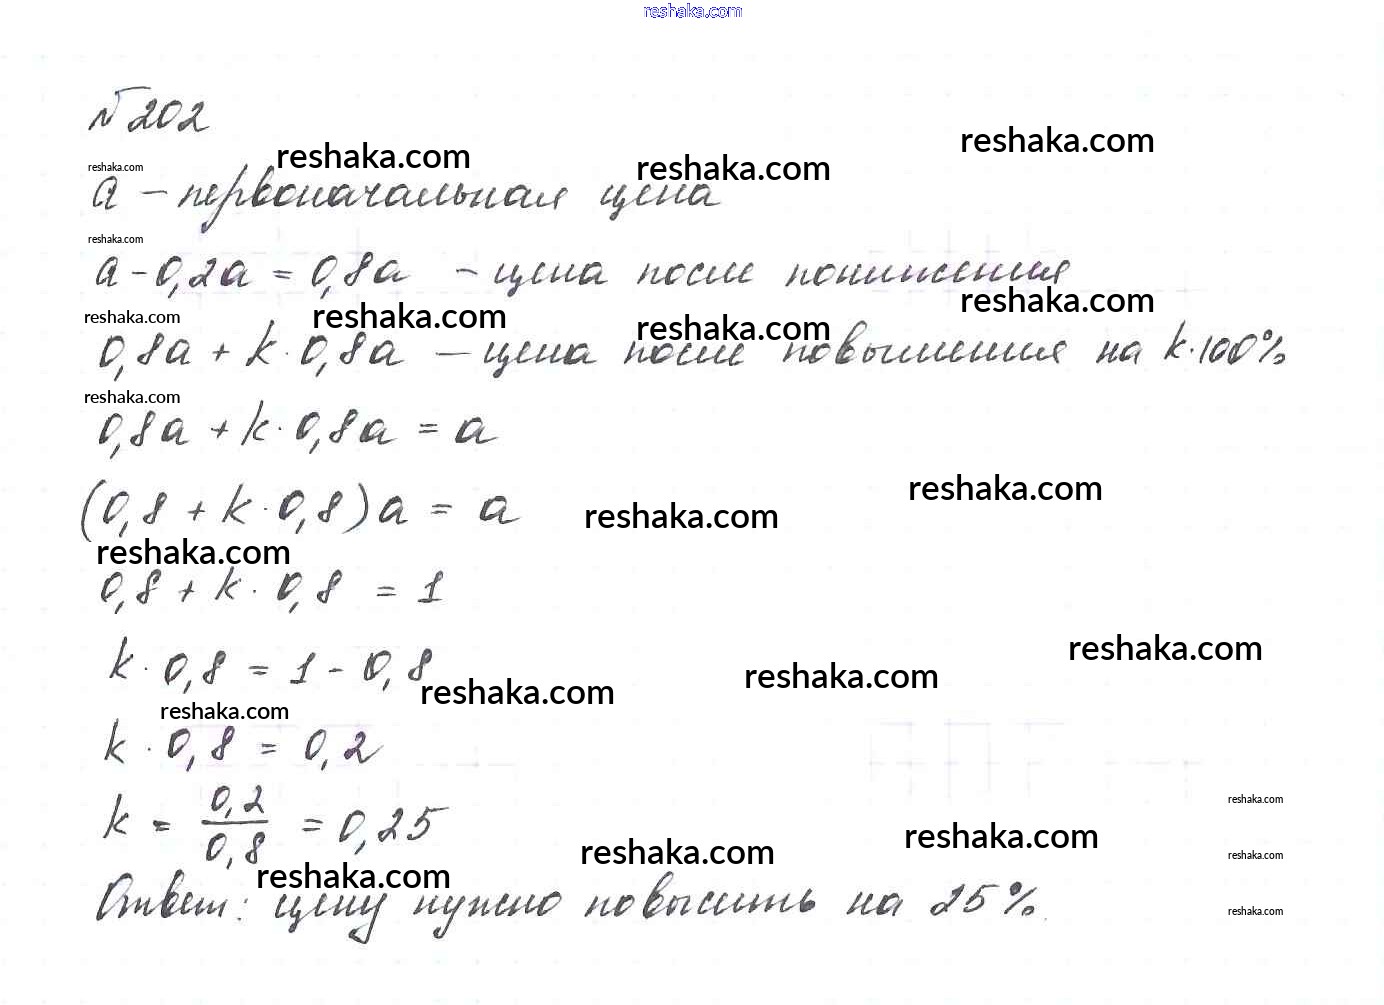 reshaka.com
№ 202
reshaka.com reshaka.com reshaka.com
reshaka.com
a – первоначальная цена
reshaka.com
a - 0,2a = 0,8a – цена после понижения
reshaka.com reshaka.com reshaka.com reshaka.com
0,8a + k · 0,8a – цена после повышения на k·100%
reshaka.com
0,8a + k · 0,8a = a
reshaka.com reshaka.com
(0,8 + k · 0,8)a = a
reshaka.com
0,8 + k · 0,8 = 1
reshaka.com reshaka.com reshaka.com
k · 0,8 = 1 - 0,8
reshaka.com
k · 0,8 = 0,2
reshaka.com
k = 0,2/0,8 = 0,25
reshaka.com reshaka.com reshaka.com reshaka.com
Ответ: цену нужно повысить на 25%.
reshaka.com